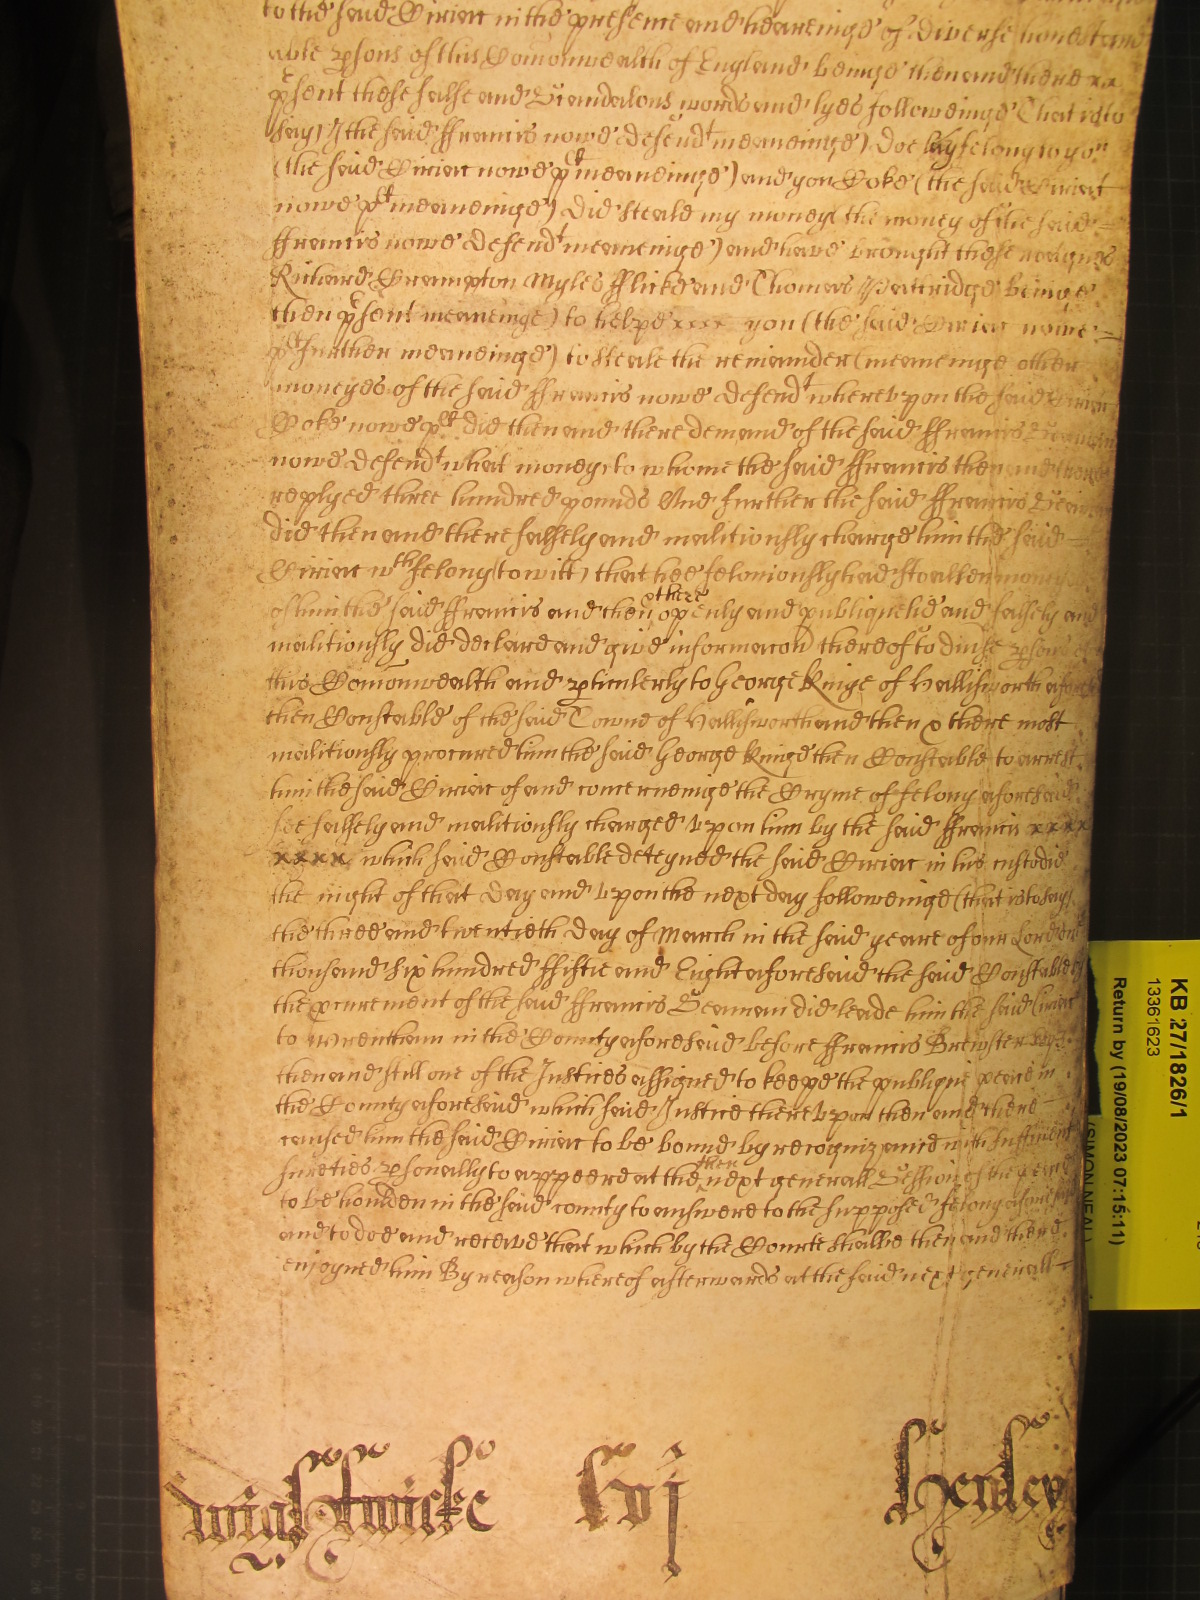 to the said Ciriac in the presence and heareinge of diverse honest and
able psons of this Comonwealth of England beinge then and there xx
psent these false and Scandalous words and lyes followeinge That is to
say) I (the said ffrancis nowe defendt meaneinge) doe lay felony to you
(the said Ciriac nowe plt meaneinge) and you Coke (the said Ciriac
nowe plt meaneinge) did steale my money (the money of the said
ffrancis nowe defendt meaneinge) and have brought these
Richard Brampton Myles fflicke and Thomas Patridge beinge
then psent meaneinge) to helpe xxxx you (the said Ciriac nowe
plt further meaneinge) to steale the remainder (meaneinge other
moneyes of the said ffrancis nowe defendt whereupon the said Ciriac
Coke nowe plt did then and there demand of the said ffrancis Seaman
nowe defendt what money, to whome the said ffrancis then and there
replyed three hundred pounds And further the said ffrancis Seaman
did then and there falsely and malitiously charge him the said
Ciriac wth felony (to witt) that hee feloniously had stoallen money
of him the said ffrancis and then & there openly and publiquelie and falsely and
malitiously did declare and give informacon thereof to diuse psons of
this Comonwealth and pticulerly to George Kinge of Hallisworth aforesd
then Constable of the said Towne of Hallisworth and then & there most
malitiously procured him the said George Kinge then Constable to arrest
him the said Ciriac of and concerneinge the Cryme of felony aforesaid
soe falsely and malitiously charged upon him by the said ffrancis xxxx
xxxx which said Constable deteyned the said Ciriac in his custodie
the night of that day and upon the next day followeinge (that is to say)
the three and twentieth day of March in the said yeare of our Lord one
thousand six hundred ffiftie and Eight aforesaid the said Constable by
the pcurement of the said ffrancis Seaman did leade him the said Ciriac
to Wrentham in the County aforesaid before ffrancis Brewster
then and still one of the Justices assigned to keepe the publique peace in
the County aforesaid which said Justice thereupon then and there
caused him the said Ciriac to be bound by recognizance with sufficient
sureties psonally to appeere at the then next generall Session of the peace
to be houlden in the said county to answere to the supposed felony aforesaid
and to doe and receive that which by the Courte shalbe then and there
enjoyned him By reason whereof afterwards at the said next generall
wightwicke lvj Henley
KB 27/1826/1
13361623
Return by (19/08/2023 07:15:11)
(SIMON NEAL)